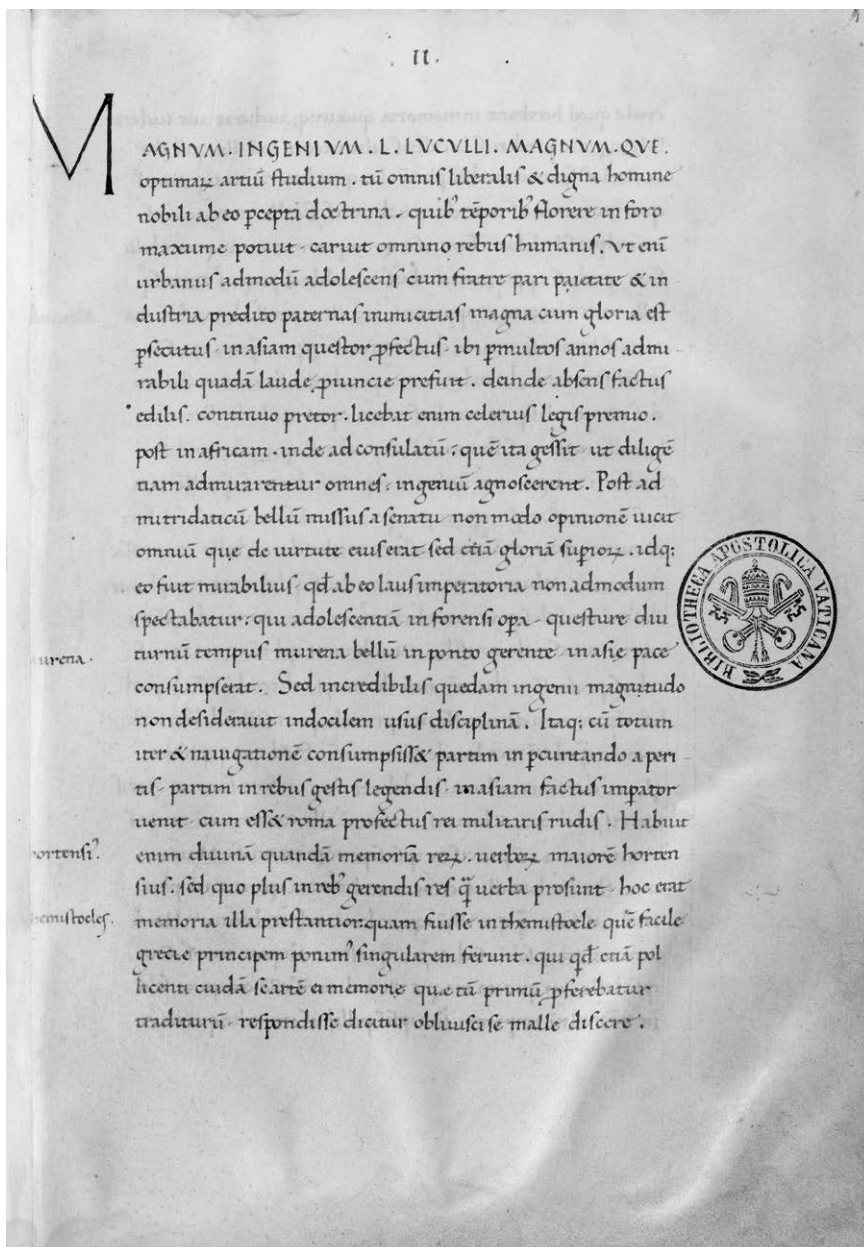 II.
MAGNVM. INGENIVM. L. LVCVLLI. MAGNVM. QVE.
optimaꝝ artiū studium. tū omnis liberalis & digna homine
nobili ab eo ꝑcepta doctrina. quibꝰ tēporibꝰ florere in foro
maxume potuit. caruit omnino rebus humanis. Vt enī
urbanus admodū adolescens cum fratre pari paietate & in
dustria predito paternas inimicitias magna cum gloria est
ꝑsecutus. in asiam questor ꝓfectus. ibi ꝑmultos annos admi
rabili quadā laude ꝓuincie prefuit. deinde absens factus
edilis. continuo pretor. licebat enim celerius legis premio.
post in africam. inde ad consulatū: quē ita gessit ut diligē
tiam admirarentur omnes: ingeniū agnoscerent. Post ad
mitridaticū bellū missus a senatu non modo opinionē uicit
omniū que de uirtute eius erat sed etiā gloriā supioꝝ. idq;
eo fuit mirabilius. qđ ab eo laus imperatoria non admodum
spectabatur: qui adolescentiā in forensi oꝑa. questure diu
turnū tempus murena bellū in ponto gerente in asie pace
consumpserat. Sed incredibilis quedam ingenii magnitudo
non desiderauit indocilem usus disciplinā. Itaq; cū totum
iter & nauigationē consumpsiss& partim in ꝑcuntando a peri
tis. partim in rebus gestis legendis. in asiam factus imꝑator
uenit. cum ess& roma profectus rei militaris rudis. Habuit
enim diuinā quandā memoriā reꝝ. uerboꝝ maiorē horten
sius. sed quo plus in rebꝰ gerendis res q̄ uerba prosunt. hoc erat
memoria illa prestantior. quam fuisse in themistocle quē facile
grecie principem ponimꝰ singularem ferunt. qui qđ etiā pol
licenti cuidā se artē ei memorie quae tū primū ꝓferebatur
traditurū. respondisse dicitur obliuisci se malle discere.
urena.
ortensiꝰ.
emistocles.
BIBLIOTHECA APOSTOLICA VATICANA